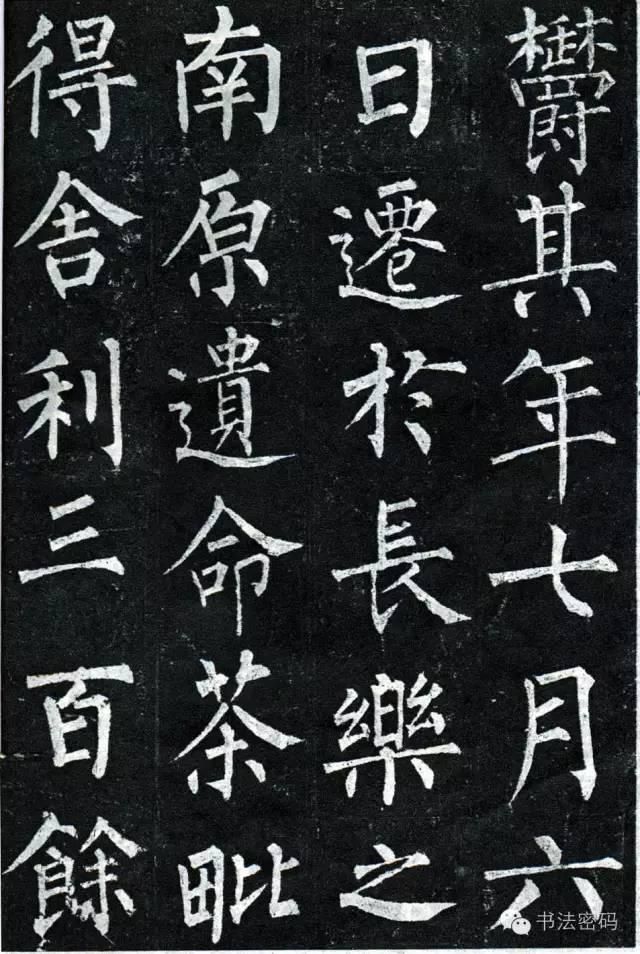 欝其年七月六
日遷於長樂之
南原遺命茶毗
得舍利三百餘
书法密码